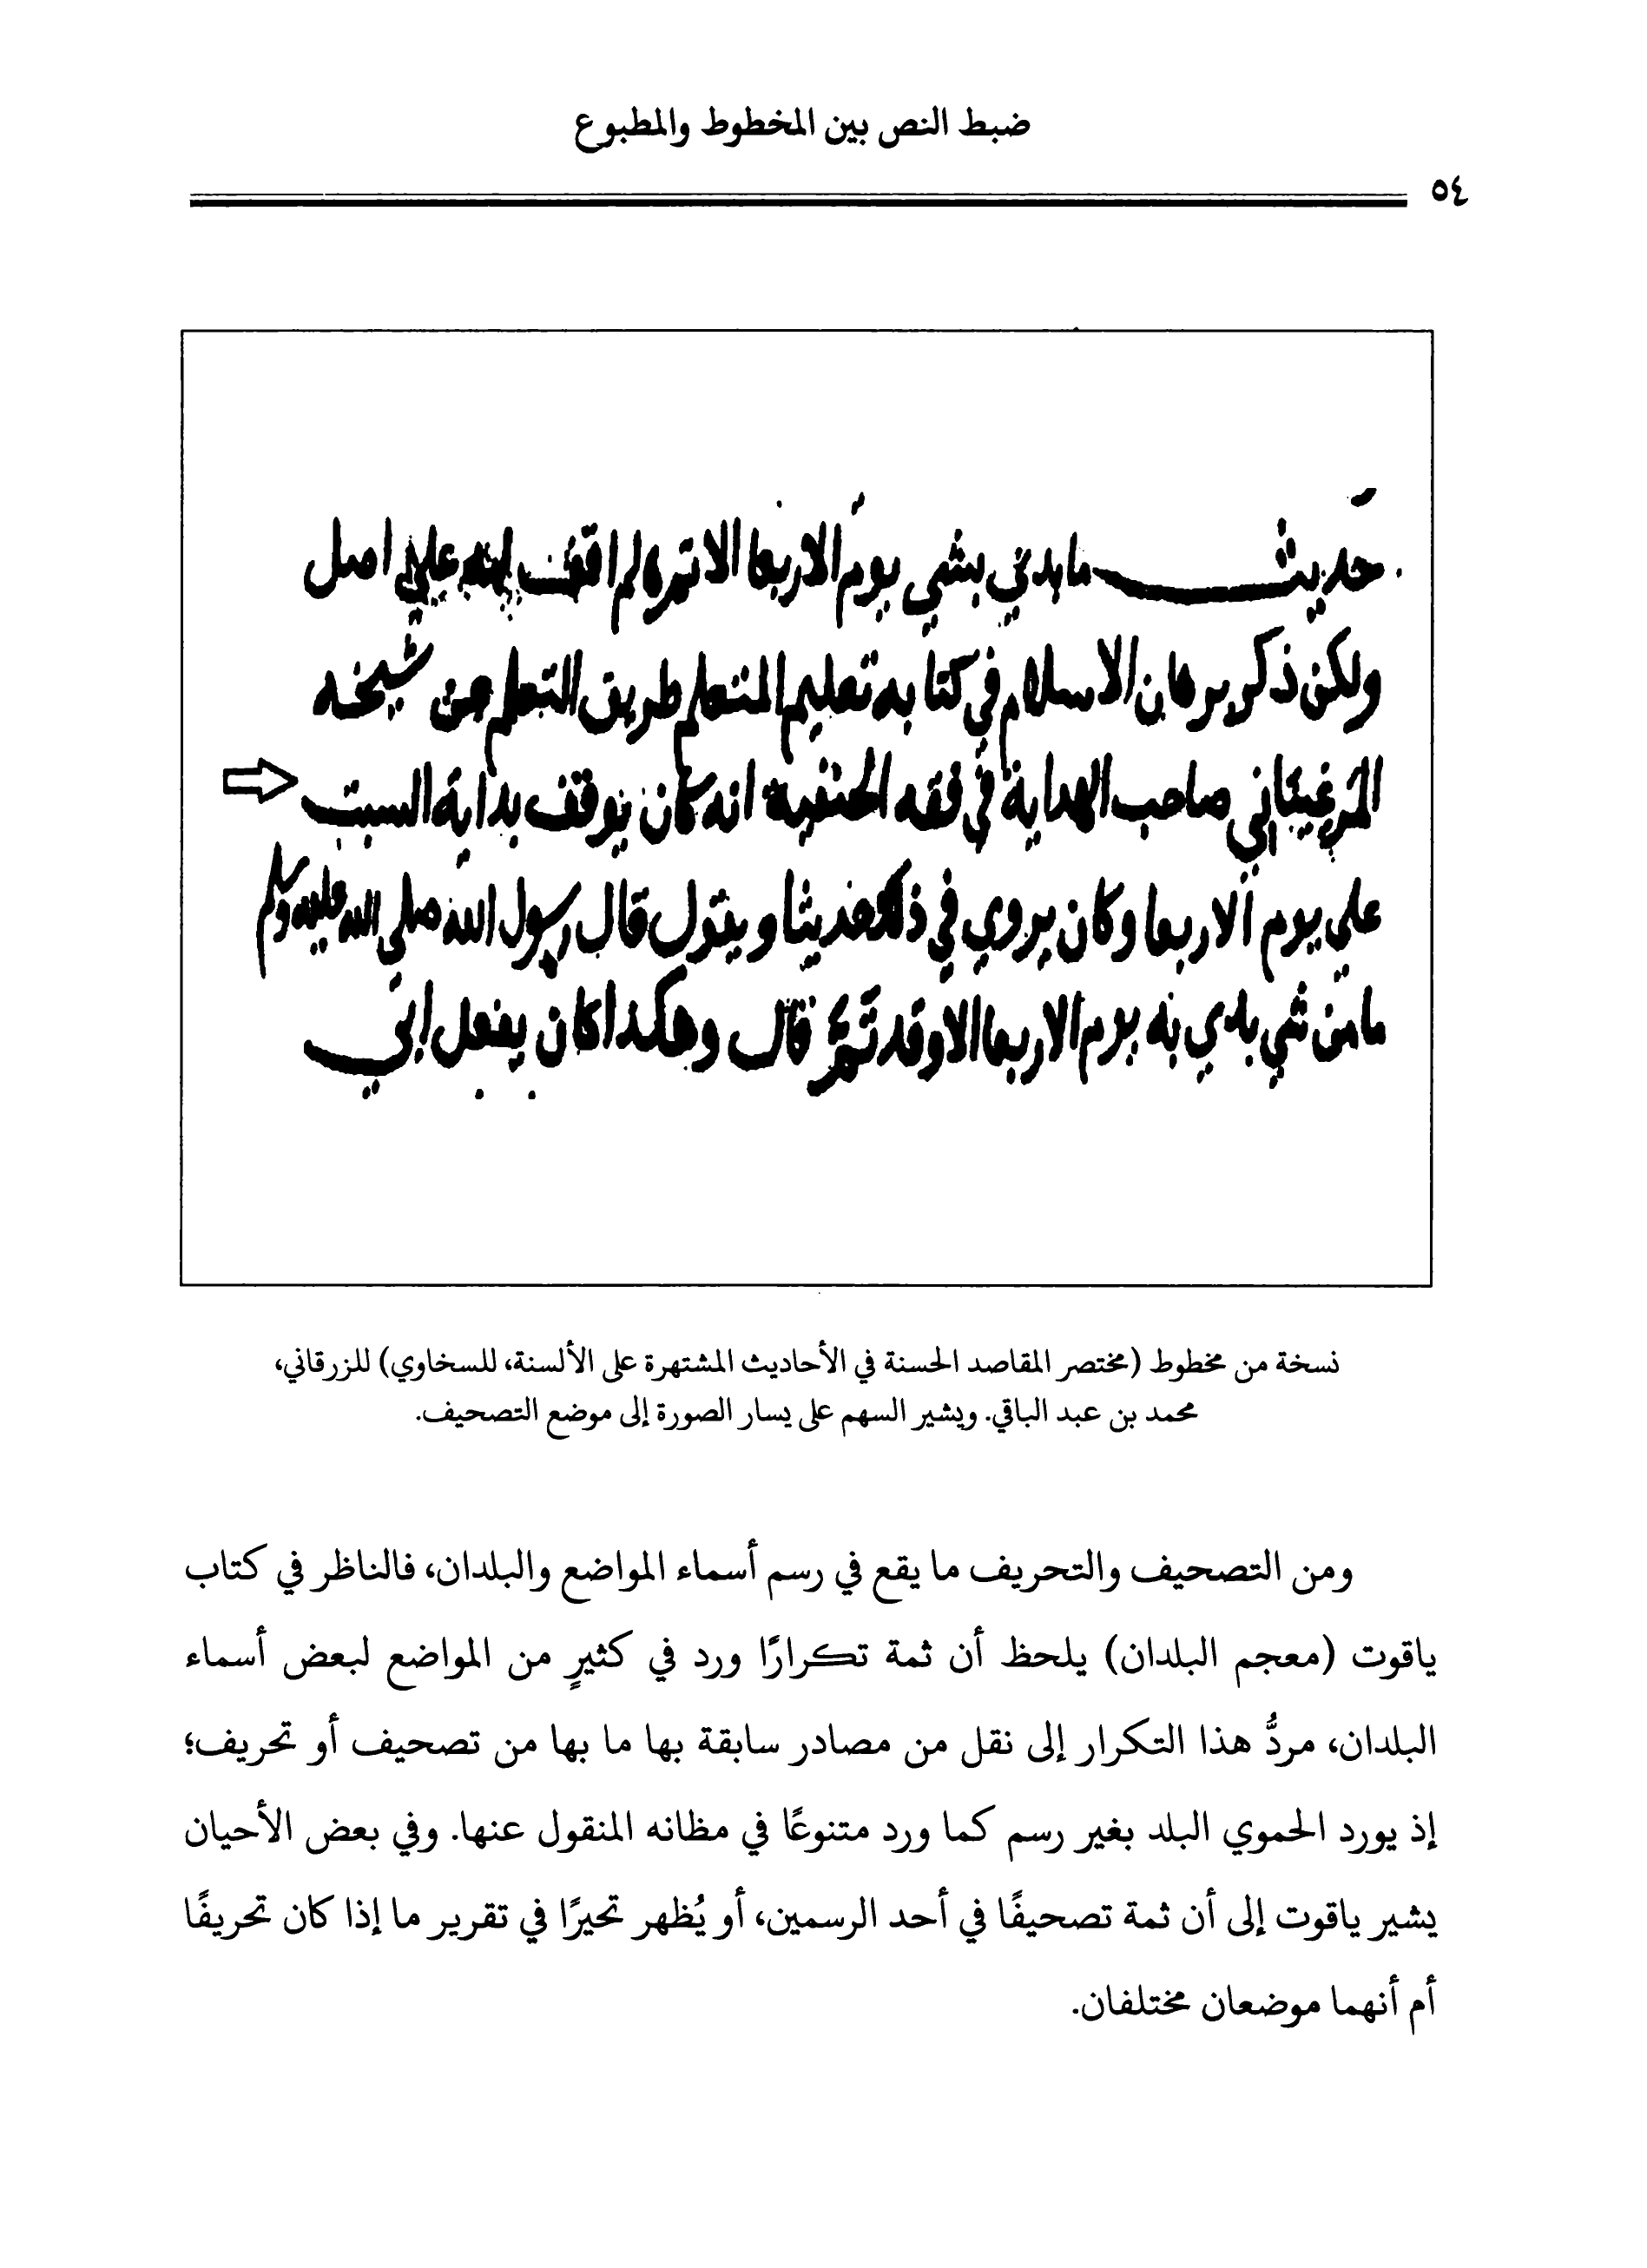 ضبط النص بين المخطوط والمطبوع
٥٤
حديث ما بدئ بشي يوم الاربعا الا تم لم اقف له على اصل
ولكن ذكر برهان الاسلام في كتابه تعليم المتعلم طريق التعلم عن شيخه
المرغيناني صاحب الهداية في فقه الحنفية انه كان يوقف بداية السبت
علي يوم الاربعا وكان يروي في ذلك حديثا ويقول قال رسول الله صلى الله عليه وسلم
ما من شي بدي به يوم الاربعا الا وقد تم قال وهكذا كان يفعل ابي
نسخة من مخطوط (مختصر المقاصد الحسنة في الأحاديث المشتهرة على الألسنة، للسخاوي) للزرقاني،
محمد بن عبد الباقي. ويشير السهم على يسار الصورة إلى موضع التصحيف.
ومن التصحيف والتحريف ما يقع في رسم أسماء المواضع والبلدان، فالناظر في كتاب
ياقوت (معجم البلدان) يلحظ أن ثمة تكرارًا ورد في كثيرٍ من المواضع لبعض أسماء
البلدان، مردُّ هذا التكرار إلى نقل من مصادر سابقة بها ما بها من تصحيف أو تحريف؛
إذ يورد الحموي البلد بغير رسم كما ورد متنوعًا في مظانه المنقول عنها. وفي بعض الأحيان
يشير ياقوت إلى أن ثمة تصحيفًا في أحد الرسمين، أو يُظهر تحيرًا في تقرير ما إذا كان تحريفًا
أم أنهما موضعان مختلفان.